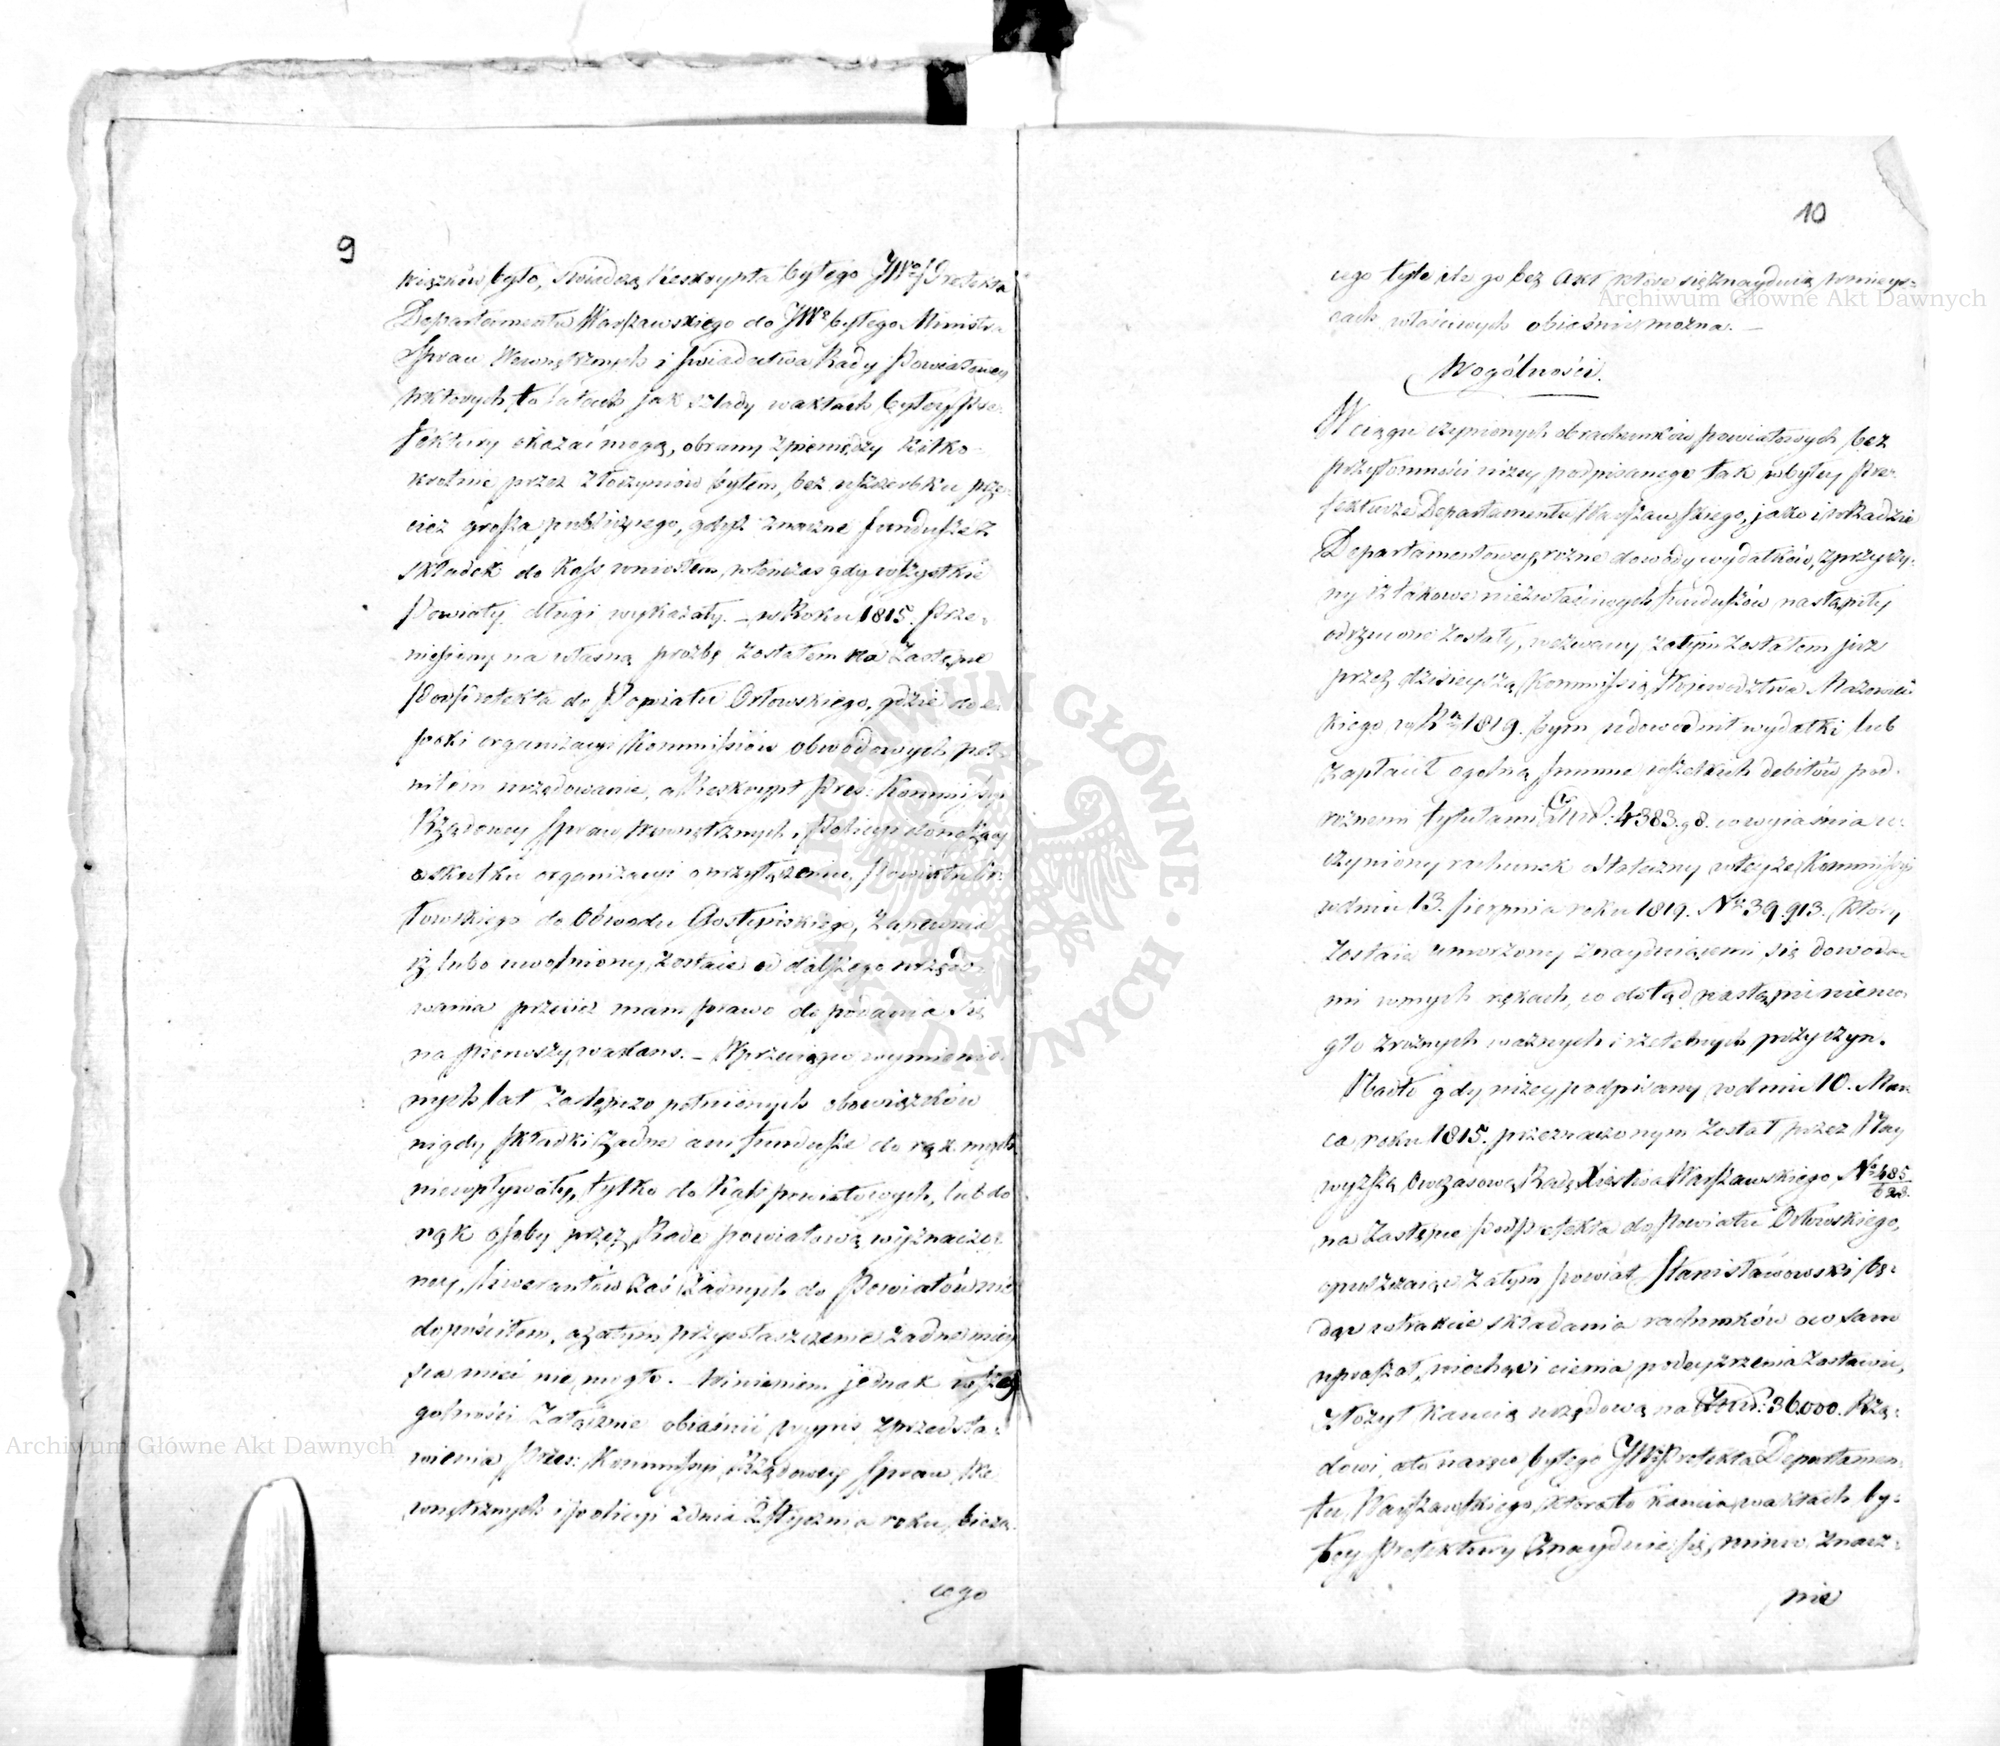 9
wiązków było, świadczą Reskrypta byłego JWgo Prefekta
Departamentu Warszawskiego do JWo byłego Ministra
Spraw Wewnętrznych i świadectwa Rady Powiatowey
w których to latach jak ślady w aktach byłey Pre-
fektury okazać mogą, obrany z pieniędzy kilko-
krotnie przez złoczyńców byłem, bez uszczerbku prze-
cież grosza publicznego, gdyż znaczne fundusze z
składek do Kass wniosłem, wtenczas gdy wszystkie
Powiaty długi wykazały. – w Roku 1815. Prze-
niesiony na własną prozbę zostałem na Zastępcę
PodPrefekta do Powiatu Orłowskiego, gdzie do e-
poki organizacyi Kommissiów obwodowych peł-
niłem urzędowanie, a Reskrypt Prez: Kommissyi
Rządowey Spraw Wewnętrznych i Policyi donoszący
o skutku organizacyi o przyłączeniu Powiatu Or-
łowskiego do Obwodu Gostyńskiego, zapewnia
iż lubo uwolniony zostaie od dalszego urzędo-
wania przecież mam prawo do podania się
na pierwszy wakans. – W przeciągu wymienio-
nych lat Zastępczo pełnionych obowiązków
nigdy składki żadne ani fundusze do rąk moich
niewpływały, tylko do Kass powiatowych, lub do
rąk osoby przez Radę powiatową wyznaczo-
ney, liwerantów zaś żadnych do Powiatów nie
dopuściłem, a zatym przywłaszczenie żadne miey-
sca mieć nie mogło. – Winienem jednak w szcze-
gólności załącznie obiaśnić wypis z przedsta-
wienia Prez: Kommissyi Rządowey Spraw We-
wnętrznych i Policyi z dnia 2 Stycznia roku bieżą-
cego
10
cego tyle ile go bez Akt które się znayduią w mieys-
cach właściwych obiaśnić można. –
W ogólności.
W ciągu czynionych obrachunków powiatowych bez
przytomności niżey podpisanego tak w byłey Pre-
fekturze Departamentu Warszawskiego, jako i w Radzie
Departamentowey, rożne dowody wydatków, z przyczy-
ny iż takowe z niewłaściwych funduszów nastąpiły
odrzucone zostały, wezwany zatym zostałem już
przez dzisieyszą Kommissią Woiewództwa Mazowiec-
kiego w Rku 1819. bym udowodnił wydatki lub
zapłacił ogólną summę wszelkich debitów pod
rożnemi tytułami Złp. 4383. g 8. co wyiaśnia u-
czyniony rachunek ostateczny w teyże Kommissyi
w dniu 13. Sierpnia roku 1819. Nr 39,913. który
zostaie umorzony znayduiącemi się dowoda-
mi w mych rękach, co dotąd nastąpić niemo-
gło z rożnych ważnych i rzetelnych przyczyn.
Nadto gdy niżey podpisany w dniu 10. Mar-
ca roku 1815. przeznaczonym został przez Nay
wyższą Tymczasową Radę Xięstwa Warszawskiego No 485
na Zastępcę PodPrefekta do Powiatu Orłowskiego,
opuszczaiąc zatym Powiat Stanisławowski bę-
dąc w trakcie składania rachunków o co sam
upraszał, niechcąc i cienia podeyrzenia zostawić,
złożył kaucią urzędową na Złp: 36.000. Rzą-
dowi, a to na ręce byłego JW Prefekta Departamen-
tu Warszawskiego, która to kaucia w aktach by-
łey Prefektury znayduie się, mimo znacz-
nie
Archiwum Główne Akt Dawnych
Archiwum Główne Akt Dawnych
ARCHIWUM GŁÓWNE · AKT DAWNYCH ·